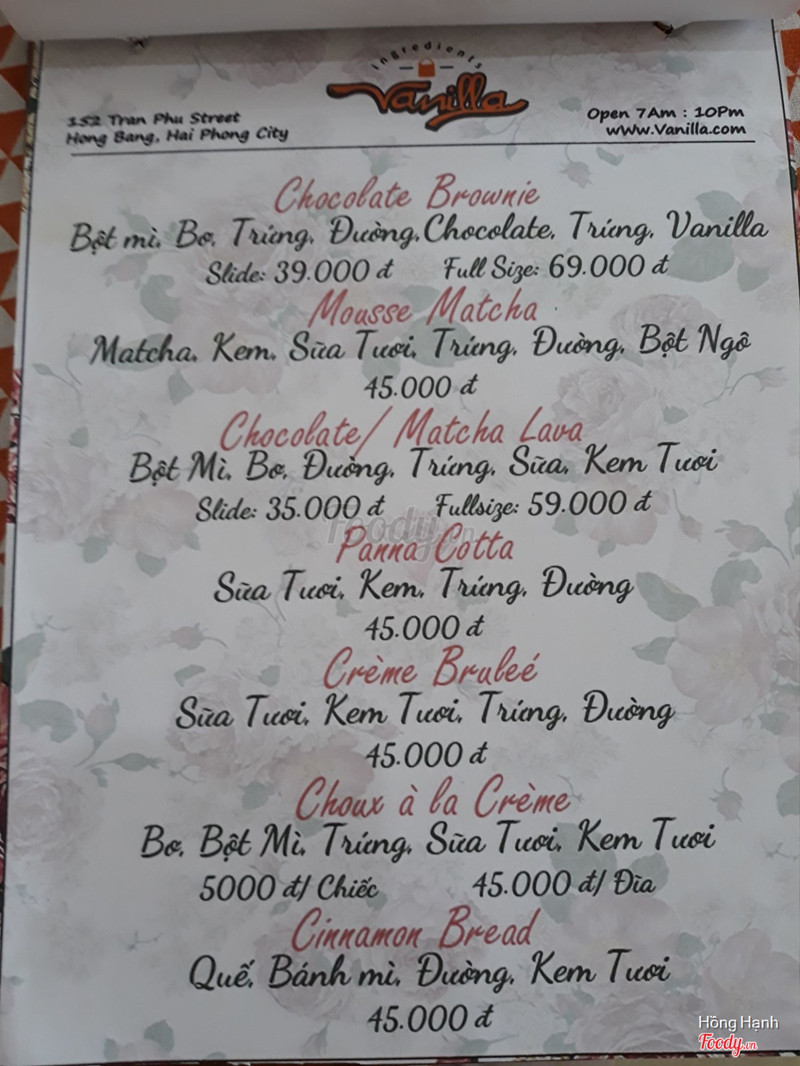 ingredients
Vanilla
152 Tran Phu Street
Hong Bang, Hai Phong City
Open 7Am : 10Pm
www.Vanilla.com
Chocolate Brownie
Bột mì, Bơ, Trứng, Đường, Chocolate, Trứng, Vanilla
Slide: 39.000 đ Full Size: 69.000 đ
Mousse Matcha
Matcha, Kem, Sữa Tươi, Trứng, Đường, Bột Ngô
45.000 đ
Chocolate/ Matcha Lava
Bột Mì, Bơ, Đường, Trứng, Sữa, Kem Tươi
Slide: 35.000 đ Fullsize: 59.000 đ
Foody.vn
Panna Cotta
Sữa Tươi, Kem, Trứng, Đường
45.000 đ
Crème Bruleé
Sữa Tươi, Kem Tươi, Trứng, Đường
45.000 đ
Choux à la Crème
Bơ, Bột Mì, Trứng, Sữa Tươi, Kem Tươi
5000 đ/ Chiếc 45.000 đ/ Đĩa
Cinnamon Bread
Quế, Bánh mì, Đường, Kem Tươi
45.000 đ
Hồng Hạnh
Foody.vn